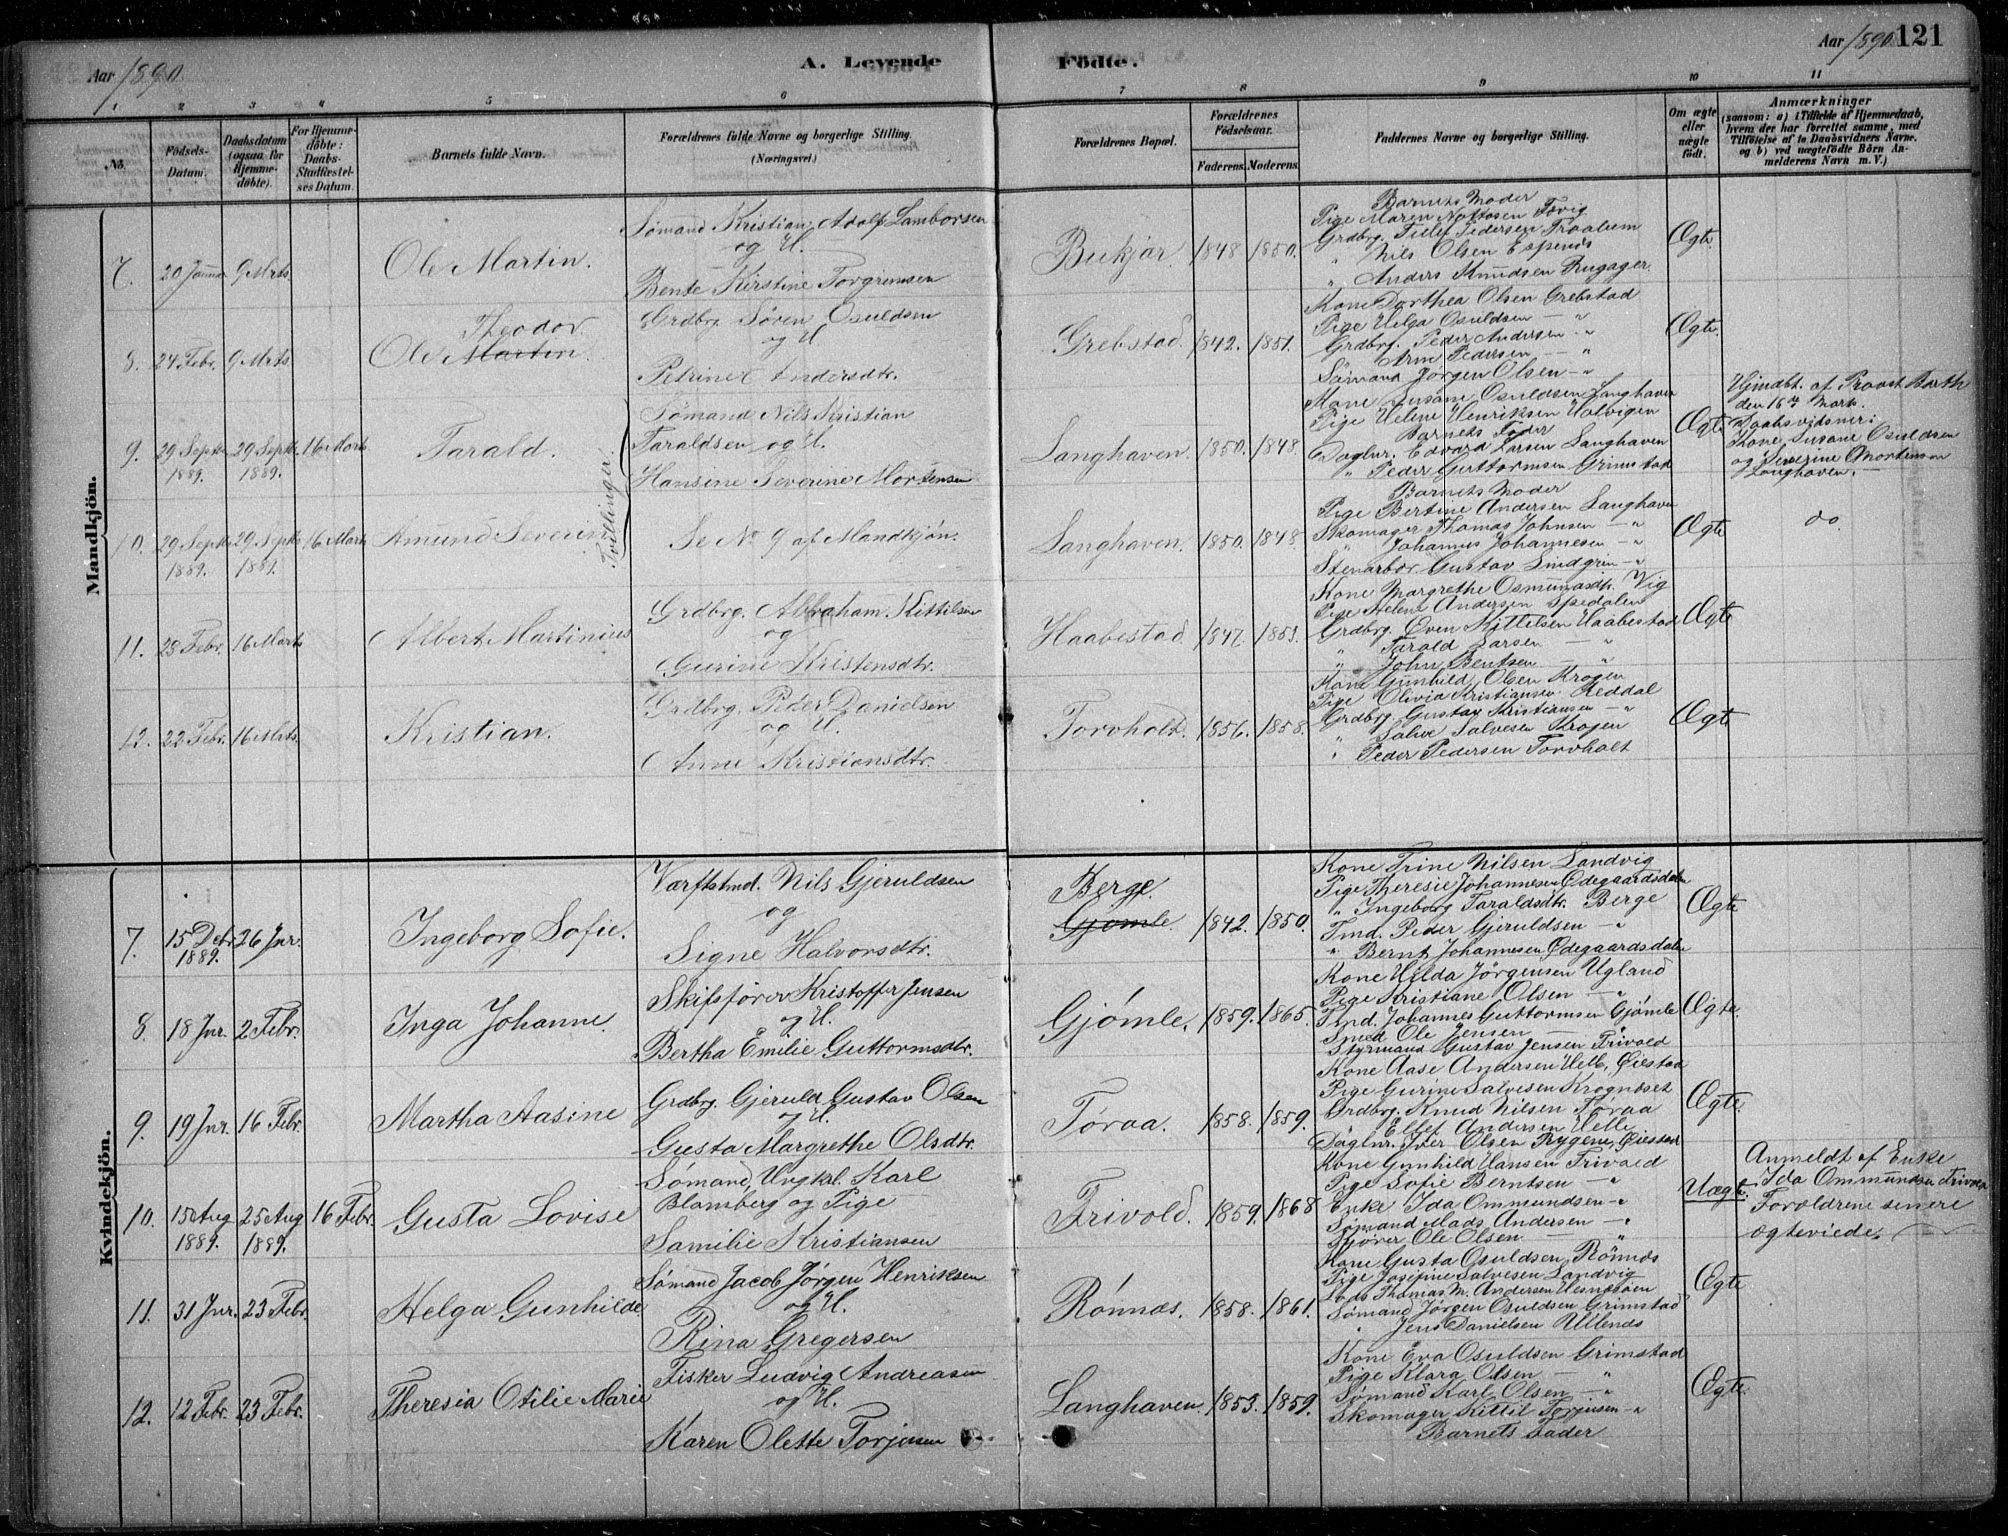 Aar 1890.
A. Levende
Födte.
Aar 1890. 121
1 2 3 4 5 6 7 8 9 10 11
No.
Födsels-Datum.
Daabsdatum (ogsaa for Hjemmedøbte).
For Hjemmedøbte: Daabs-Stadfæstelses Datum.
Barnets fulde Navn.
Forældrenes fulde Navne og borgerlige Stilling. (Næringsvei.)
Forældrenes Bopæl.
Forældrenes Födselsaar.
Faderens. Moderens.
Faddernes Navne og borgerlige Stilling.
Om ægte eller uægte født.
Anmærkninger
(saasom: a) i Tilfælde af Hjemmedaab, hvem der har forrettet samme, med Tilføielse af to Daabsvidners Navne. og b) ved uægtefødte Børn Anmelderens Navn m. V.)
Mandkjön.
7. 20 Januar 9 Mrts
Ole Martin.
Sømand Kristian Adolf Lamborsen
og H.
Bente Kirstine Torgrimsen
Bukjær. 1848 1850.
Barnets Moder
Pige Maren Nottosen Tovig
Grdbrg. Tellef Pedersen Traalum
" Nils Olsen Espenes
" Anders Knudsen Rugager
Ægte.
8. 24 Febr. 9 Mrts.
Theodor
Ole Martin.
Grdbrg. Sören Osuldsen
og H
Petrine Andersdtr.
Grebstad. 1842. 1851.
Kone Dorthea Olsen Grebstad
Pige Helga Osuldsen — "
Grdbrg. Peder Andersen "
" Arne Pedersen — "
Sömand Jørgen Olsen — "
Ægte.
9. 29 Septbr. 1889. 29 Septb. 1889. 16 Marts
Tarald.
Tvillinger.
Sømand Nils Kristian
Taraldsen og H.
Hansine Severine Mortensen
Langhaven. 1850. 1848.
Kone Susane Osuldsen Langhaven
Pige Helene Henriksen Halvigen
Barnets Fader
Daglnr. Edvard Larsen Langhaven
" Peder Guttormsen Grimstad
Ægte
Hjmdbt. af Provst Barth
den 16de Mark.
Daabsvidner:
Kone Susane Osuldsen
og Severine Mortensen
Langhaven. —
10. 29 Septb. 1889. 29 Septb. 1889. 16 Marts
Amund Severin
Se No 9 af Mandkjøn.
Langhaven. 1850. 1848.
Barnets Moder
Pige Bertine Andersen Langhaven
Skomager Thomas Johnsen — "
" Johannes Johannesen — "
Stenarbor. Gustav Lindgrin — "
Ægte
do.
11. 28 Febr. 16 Marts
Albert Martinius
Grdbrg. Abraham Kittilsen
og
Gurine Kristensdtr.
Haabestad 1847. 1853.
Kone Margrethe Osmundsdtr. Vig
Pige Helene Andersen Spedalen
Grdbrg. Oven Kittelsen Haabestad
" Tarald Larsen — "
" John Bentsen — "
Ægte
12. 22 Febr. 16 Mrts.
Kristian.
Grdbrg. Peder Danielsen
og H.
Anne Kristiansdtr.
Torvholt. 1856. 1858.
Kone Gunhild Olsen Krogen
Pige Olivia Kristiansen Reddal
Grdbrg. Gustav Kristiansen — "
" Salve Salvesen Krogen
" Peder Pedersen Torvholt
Ægte
Kvindekjön.
7. 15 Debr. 1889. 26 Jnr.
Ingeborg Sofie.
Værftstmd. Nils Gjeruldsen
og
Signe Halvorsdtr.
Berge.
Gjömle. 1842. 1850.
Kone Trine Nilsen Landvig
Pige Theresie Johannesen Ødegaardsdalen
" Ingeborg Taraldsdtr. Berge
Tmd. Peder Gjeruldsen — "
" Bernt Johannesen Ødegaardsdalen
Ægte
8. 18 Jnr. 2 Febr.
Inga Johanne.
Skifsförer Kristoffer Jensen
og H.
Bertha Emilie Guttormsdtr.
Gjömle. 1859. 1865.
Kone Hilda Jörgensen Ugland
Pige Kristiane Olsen — "
Tmd. Johannes Guttormsen Gjömle
Smed Ole Jensen — "
Styrmand Gustav Jensen Frivold
Ægte.
9. 19 Jnr. 16 Febr.
Martha Aasine
Grdbrg. Gjeruld Gustav Olsen
og H.
Gusta Margrethe Olsdtr.
Töraa. 1858. 1859.
Kone Aase Andersen Helle, Øiestad
Pige Gurine Salvesen Krognæset
Grdbrg. Knud Nilsen Töraa
" Ellef Andersen Helle
Daglnr. Iver Olsen Rygene, Øiestad
Ægte.
10. 15 Aug 1889. 25 Aug 1889. 16 Febr.
Gusta Lovise
Sømand, Ungkl. Karl
Blomberg og Pige
Samilie Kristiansen
Frivold. 1859. 1868
Kone Gunhild Hansen Frivold
Pige Sofie Berntsen — "
Enke Ida Ommundsen — "
Sømand Mads Andersen — "
Ole Olsen — "
Uægte.
Anmeldt af Enke
Ida Ommundsen Frivold
Forældrene senere
ægteviede.
11. 31 Jnr. 23 Febr.
Helga Gunhilde
Sømand Jacob Jørgen Henriksen
og H.
Rina Gregersen
Rönnæs. 1858. 1861.
Kone Gusta Osuldsen Rönnæs
Pige Josefine Salvesen Landvig
Lods Thomas M. Andersen Hesnæsöen
Sømand Jörgen Osuldsen Grimstad
" Jens Danielsen Ullenæs
Ægte
12. 12 Febr. 23 Febr.
Theresia Otilie Marie
Fisker Ludvig Andreasen
og H.
Karen Olette Torjusen
Langhaven. 1853. 1859.
Kone Eva Osuldsen Grimstad
Pige Klara Olsen — "
Sømand Karl Olsen — "
Skomager Kittil Torjusen — "
Barnets Fader
Ægte